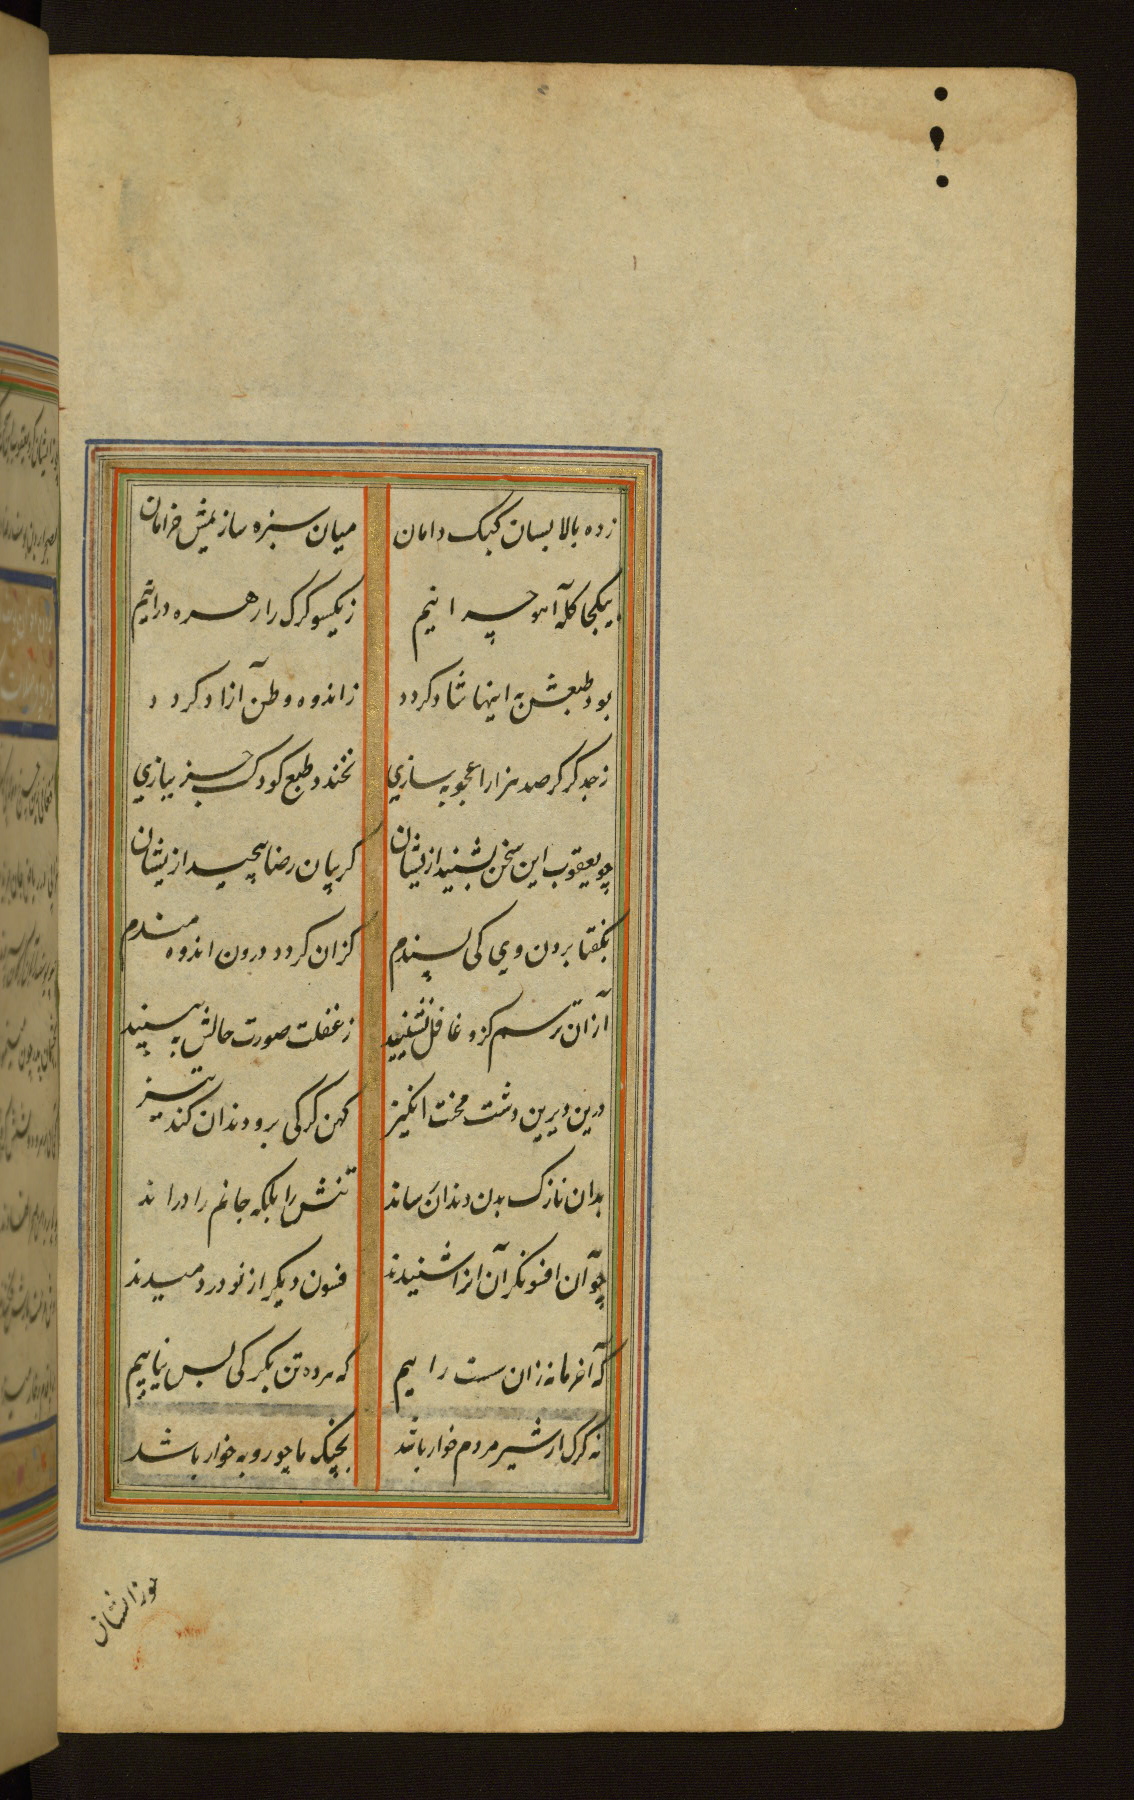 زده بالا بسان کبک دامان میان سبزه سازیمش خرامان
بیکجا کله آهو چرانیم زیکسو کرک را زهره درانیم
بود طبعش به اینها شاد کردد ز اندوه وطن آزاد کردد
ز جد کر کر صد هزار اعجوبه سازی نخندد طبع کودک جز ببازی
چو یعقوب این سخن بشنید ازیشان کریبان رضا پیچید ازیشان
بکفتا بردن وی کی پسندم کزان کردد درون اندوه مندم
از ان ترسم کزو غافل نشینید ز غفلت صورت حالش نه بینید
درین دیرین دشت محنت انکیز کهن کرکی برو دندان کند تیز
بدان نازک بدن دندان رساند تنش را بلکه جانم را دراند
چو آن افسونکران آنرا شنیدند فسون دیکر از نو دردمیدند
که آخر ما نه زان سست راییم که هر ده تن بکرکی بس نیاییم
نه کرک ار شیر مردم خوار باشد بچنک ما چو روبه خوار باشد
چو زایشان